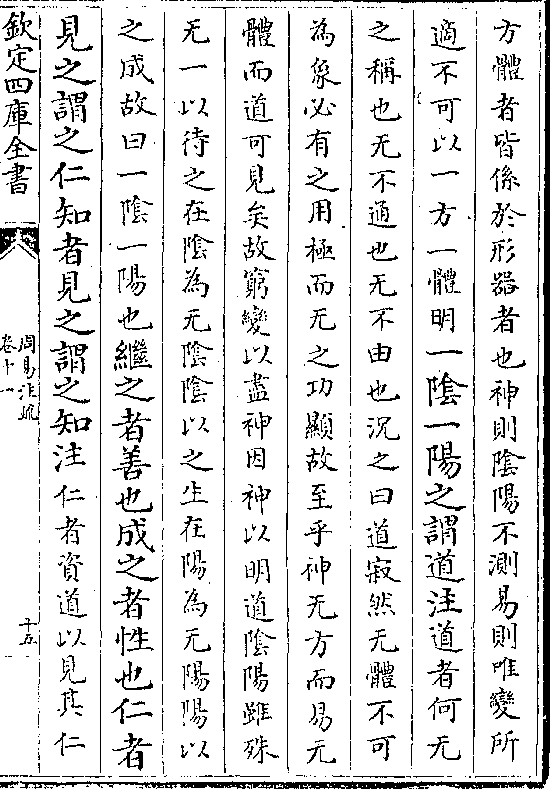 方體者皆係於形器者也神則陰陽不測易則唯變所
適不可以一方一體明一陰一陽之謂道注道者何无
之稱也无不通也无不由也況之曰道寂然无體不可
為象必有之用極而无之功顯故至乎神无方而易无
體而道可見矣故窮變以盡神因神以明道陰陽雖殊
无一以待之在陰為无陰陰以之生在陽為无陽陽以
之成故曰一陰一陽也繼之者善也成之者性也仁者
見之謂之仁知者見之謂之知注仁者資道以見其仁
欽定四庫全書
周易注疏
卷十一
十五